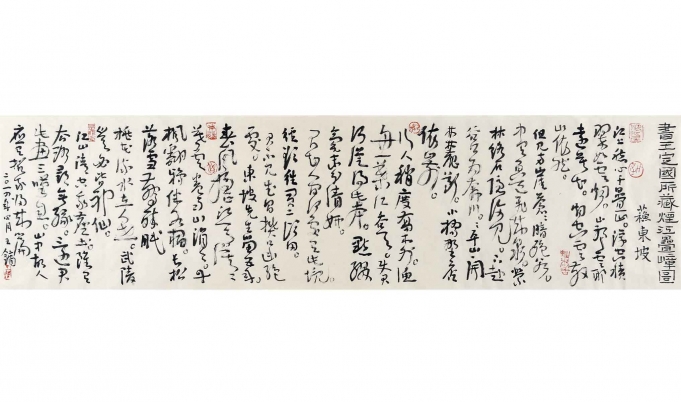 書王定國所藏煙江疊嶂圖
蘇東坡
江上愁心千疊山。浮空積
翠如雲煙。山耶雲耶
遠莫知。煙空雲散
山依然。
但見兩崖蒼蒼暗絕谷
中有百道飛來泉。縈
林絡石隱復見。下赴
谷口為奔川。川平山開
林麓斷。小橋野店
依山前。
行人稍度喬木外。漁
舟一葉江吞天。使君
何從得此本。點綴
毫末分清妍。
不知人間何處有此境。
徑欲往買二頃田。
君不見武昌樊口幽絕
處。東坡先生留五年。
春風搖江天漠漠
暮雲卷雨山娟娟。丹
楓翻鴉伴水宿。長松
落雪驚醉眠
桃花流水在人世。武陵
豈必皆神仙。
江山清空我塵土。雖有
去路尋無緣。還君
此畫三嘆息。山中故人
應有招我歸來篇
二〇一四年四月 王鏞